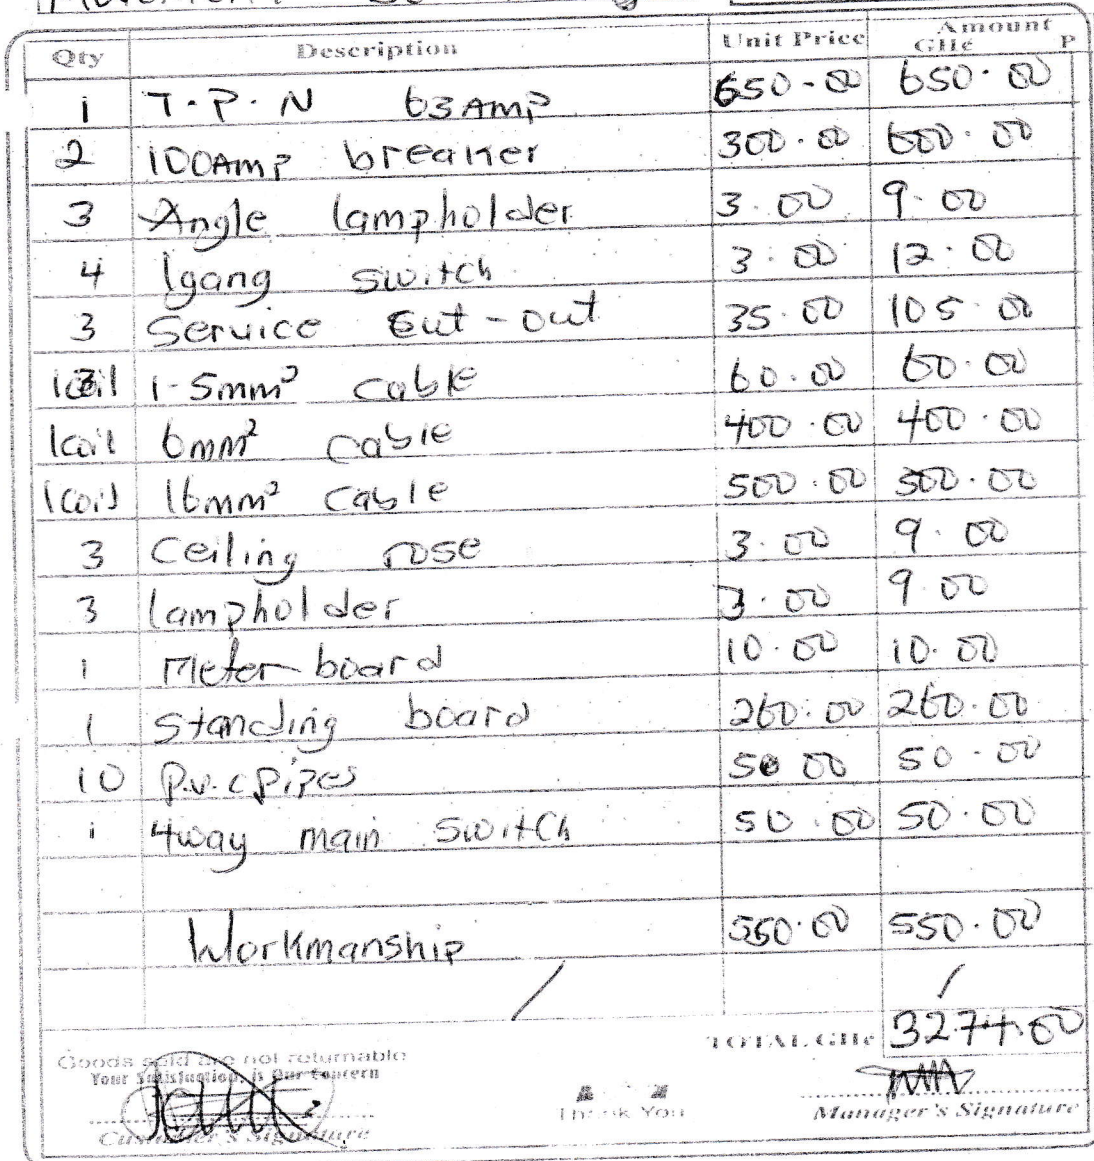 Qty Description Unit Price Amount
GH¢ P
1 T.P.N 63Amp 650-00 650.00
2 100Amp breaker 300.00 600.00
3 Angle lampholder 3.00 9.00
4 1gang switch 3.00 12.00
3 Service cut-out 35.00 105.00
1coil 1.5mm² cable 60.00 60.00
1coil 6mm² cable 400.00 400.00
1coil 16mm² cable 500.00 500.00
3 Ceiling rose 3.00 9.00
3 lampholder 3.00 9.00
1 Meter board 10.00 10.00
1 Standing board 260.00 260.00
10 P.v.c pipes 50 00 50.00
1 4way main switch 50.00 50.00
Workmanship 550.00 550.00
TOTAL GH¢ 3274.00
Goods sold are not returnable
Your Satisfaction, is Our Concern
Thank You
Customer's Signature Manager's Signature